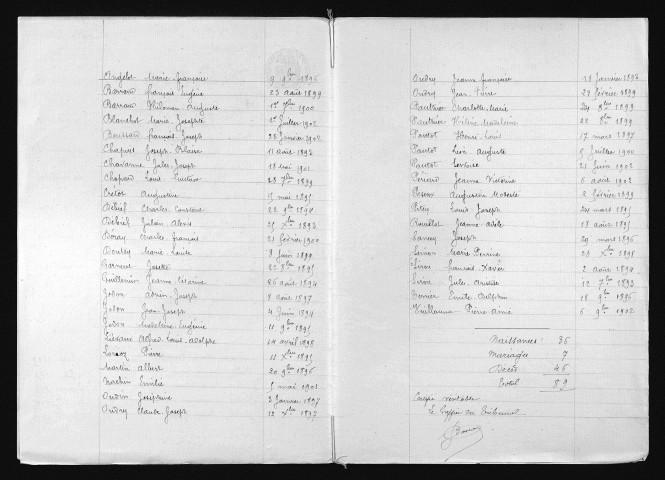 Angelot Marie françoise 9 9bre 1896
Barraux françois Eugène 23 août 1899
Barraux Philomen Auguste 1er 9bre 1900
Blanchot Marie Josephte 1er Juillet 1902
Boussard françois Joseph 28 Janvier 1902
Chapuis Joseph Hilaire 11 août 1893
Chavanne Jules Joseph 18 mai 1901
Chopard Louis Gustave 28 7bre 1899
Crétot Augustine 15 mai 1895
Débief Charles Constant 22 9bre 1894
Débief Julien Alexis 25 Xbre 1893
Déray Charles françois 21 février 1900
Doussy Marie Louise 8 Juin 1899
Josette 22 9bre 1895
Guillemin Jeanne Césarine 26 août 1894
Jobin Adrien Joseph 8 août 1897
Jobin Jean Joseph 4 Juin 1894
Jobin Madeleine Eugénie 11 9bre 1895
Alfred Louis Adolphe 14 avril 1898
Pierre 11 Xbre 1895
Martin Albert 20 9bre 1896
Emilie 5 mai 1901
Oudry Joséphine 2 Janvier 1897
Oudry Claude Joseph 12 Xbre 1897
Oudry Jeanne françoise 18 Janvier 1893
Oudry Jean Pierre 27 février 1899
Pauthier Charlotte Marie 24 8bre 1899
Pauthier Hélène Madeleine 22 8bre 1899
Pautot Henri Louis 17 mars 1897
Pautot Léon Auguste 8 Juillet 1900
Pautot 21 Juin 1902
Périard Jeanne Victorine 6 août 1902
Augustin Modeste 2 février 1899
Louis Joseph 24 mars 1895
Jeanne Adèle 18 août 1895
Sancey Joseph 29 mars 1896
Simon Marie Perrine 23 Xbre 1898
françois Xavier 2 août 1894
Jules Arsène 12 7bre 1893
Vernier Emile Delphin 18 9bre 1896
Vuillaume Pierre Aimé 6 9bre 1902
Naissances 36
Mariages 7
Décès 46
Total 89
Copie véritable
Le Greffier du Tribunal